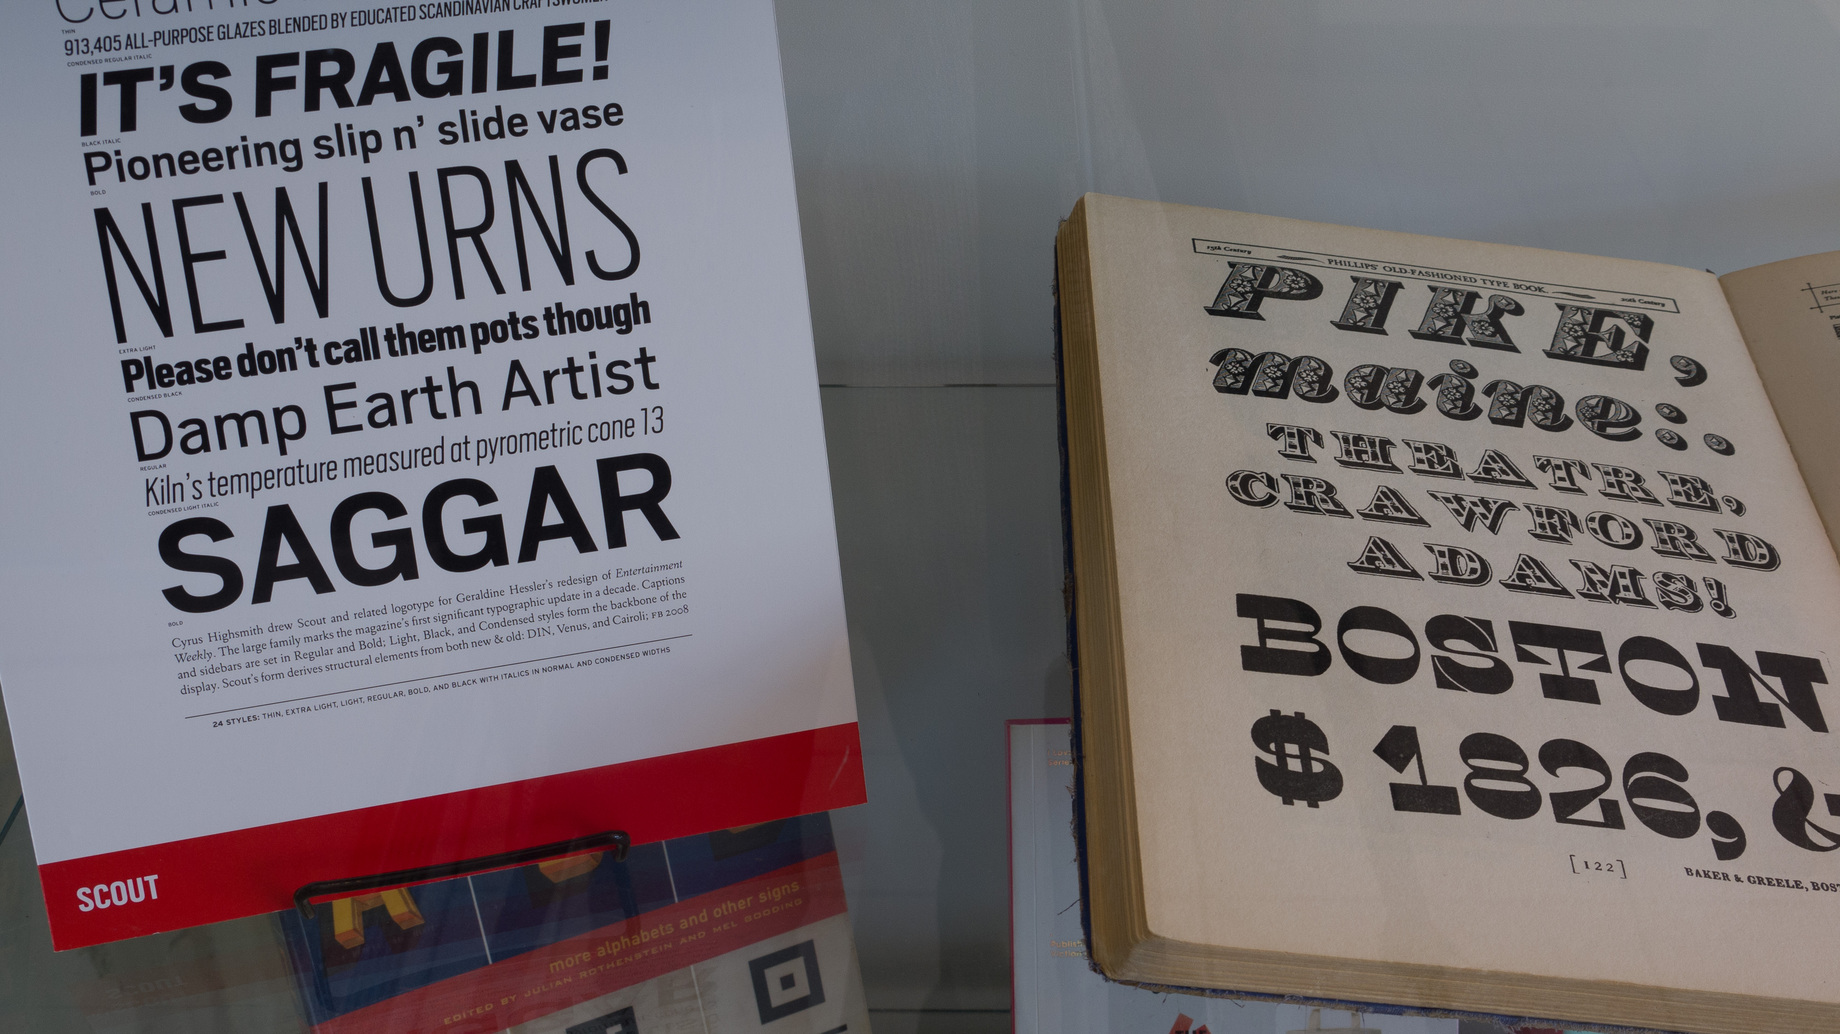 Ceramic
THIN
913,405 ALL-PURPOSE GLAZES BLENDED BY EDUCATED SCANDINAVIAN CRAFTSWOMEN
CONDENSED REGULAR ITALIC
IT'S FRAGILE!
BLACK ITALIC
Pioneering slip n' slide vase
BOLD
NEW URNS
EXTRA LIGHT
Please don't call them pots though
CONDENSED BLACK
Damp Earth Artist
REGULAR
Kiln's temperature measured at pyrometric cone 13
CONDENSED LIGHT ITALIC
SAGGAR
BOLD
Cyrus Highsmith drew Scout and related logotype for Geraldine Hessler's redesign of Entertainment
Weekly. The large family marks the magazine's first significant typographic update in a decade. Captions
and sidebars are set in Regular and Bold; Light, Black, and Condensed styles form the backbone of the
display. Scout's form derives structural elements from both new & old: DIN, Venus, and Cairoli; FB 2008
24 STYLES: THIN, EXTRA LIGHT, LIGHT, REGULAR, BOLD, AND BLACK WITH ITALICS IN NORMAL AND CONDENSED WIDTHS
SCOUT
more alphabets and other signs
EDITED BY JULIAN ROTHENSTEIN AND MEL GOODING
15th Century
PHILLIPS' OLD-FASHIONED TYPE BOOK
20th Century
PIKE,
maine:.
THEATRE,
CRAWFORD
ADAMS!
BOSTON
$ 1826, &
[122]
BAKER & GREELE, BOST